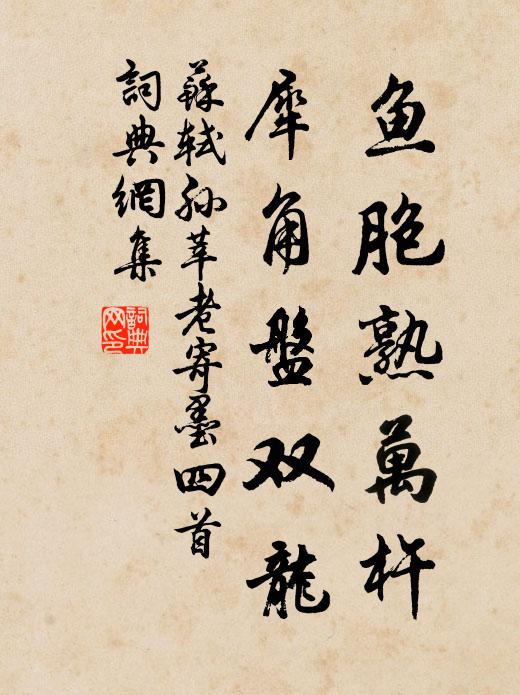 鱼胞熟萬杵
犀角盤双龍
蘇軾孙莘老寄墨四首
詞典網集
詞典网印